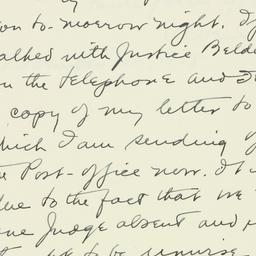 on to-morrow night. I
talked with Justice Belde
on the telephone and
copy of my letter to
which I am sending
the Post-office now. It
due to the fact that we
one Judge absent and
to be unwise